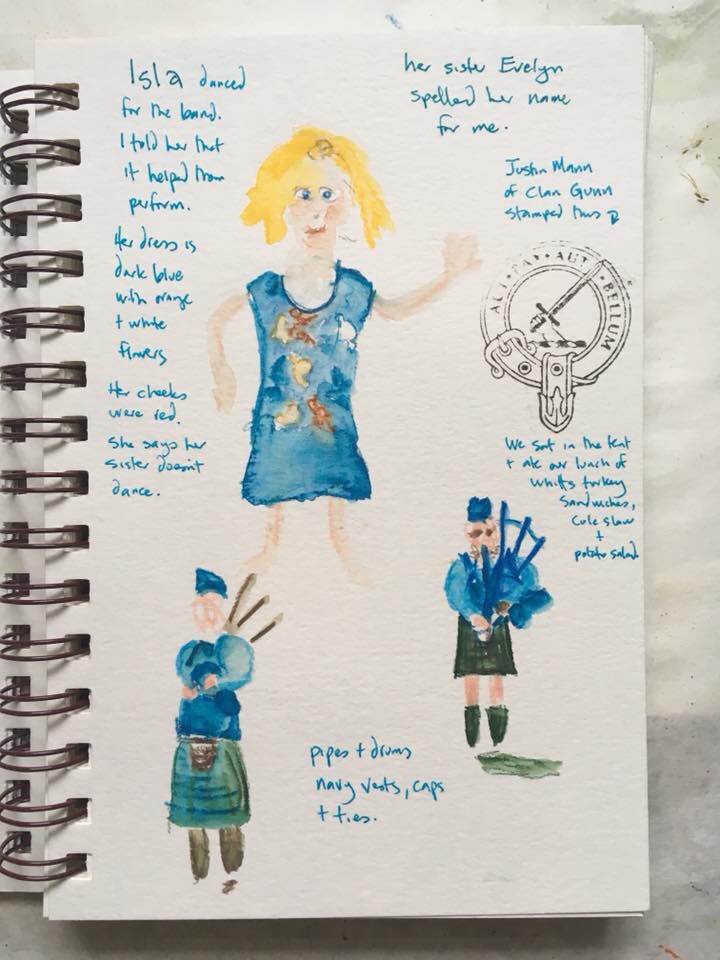 Isla danced
for the band.
I told her that
it helped them
perform.
Her dress is
dark blue
with orange
+ white
flowers
Her cheeks
were red.
She says her
sister doesn't
dance.
her sister Evelyn
spelled her name
for me.
Justin Mann
of Clan Gunn
stamped this
AUT PAX AUT BELLUM
We sat in the tent
+ ate our lunch of
Whitts turkey
sandwiches,
Cole slaw
+
potato salad
pipes + drums
navy vests, caps
+ ties.